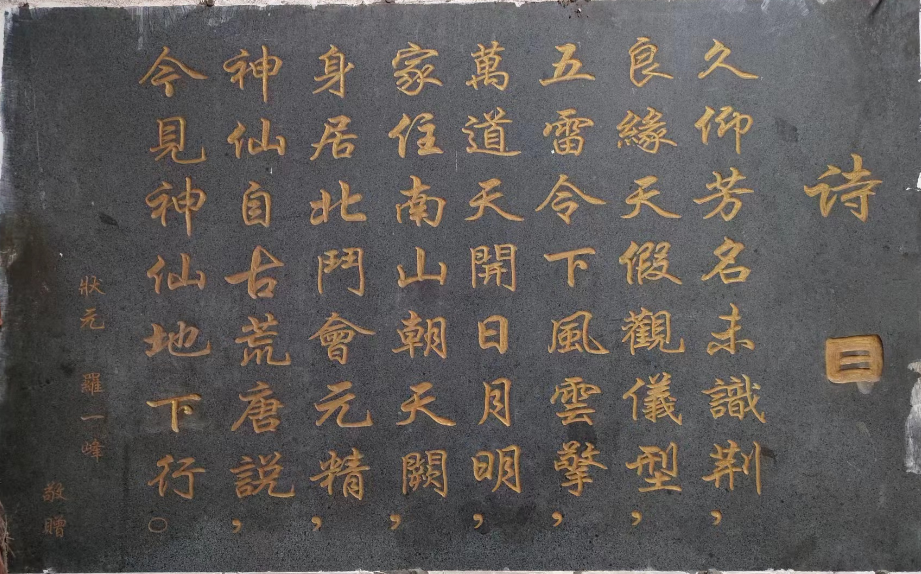 詩曰
久仰芳名未識荆，
良緣天假觀儀型，
五雷令下風雲擎，
萬道天開日月明，
家住南山朝天闕，
身居北鬥會元精，
神仙自古荒唐説，
今見神仙地下行。
狀元 羅一峰 敬贈